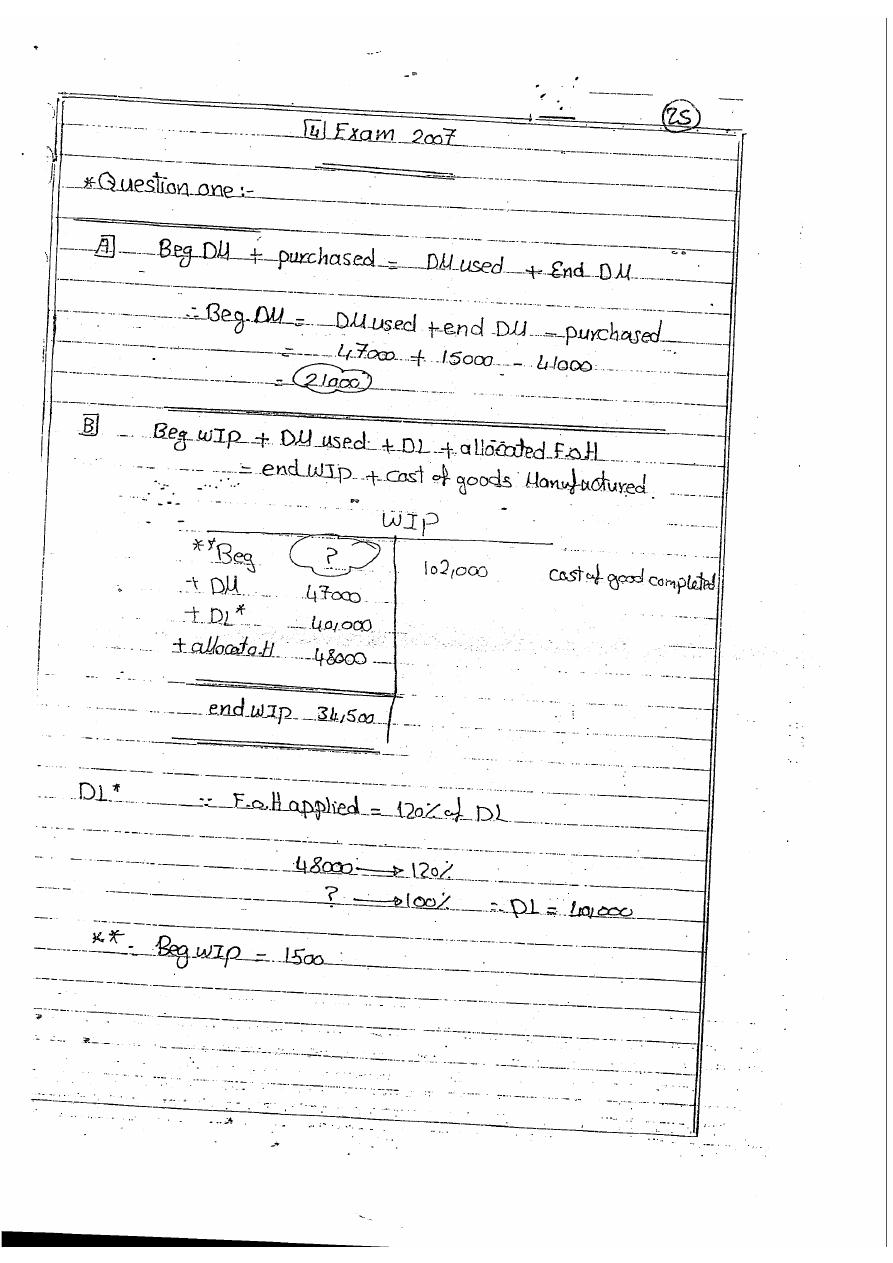 25
4 Exam 2007
*Question one:-
A Beg DM + purchased = DM used + End DM
∴ Beg. DM = DM used + end DM - purchased
= 47000 + 15000 - 41000
= 21000
B Beg WIP + DM used + DL + allocated F.o.H
= end WIP + cost of goods Manufactured.
WIP
**Beg ? 102,000 cost of good completed
+ DM 47000
+ DL* 40,000
+ allocate.H 48000
end WIP 34,500
DL* ∵ F.o.H applied = 120% of DL
48000 → 120%
? → 100% ∴ DL = 40,000
**- Beg WIP = 1500